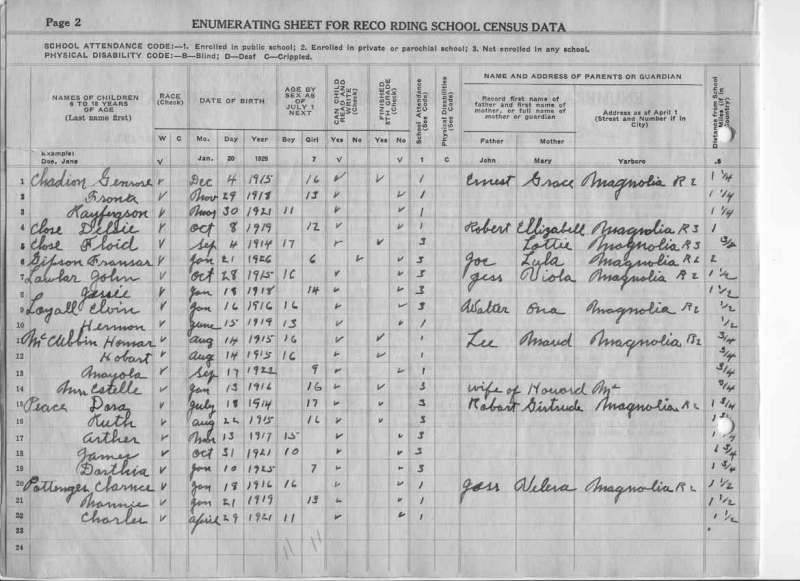 Page 2 ENUMERATING SHEET FOR RECO RDING SCHOOL CENSUS DATA
SCHOOL ATTENDANCE CODE:—1. Enrolled in public school; 2. Enrolled in private or parochial school; 3. Not enrolled in any school.
PHYSICAL DISABILITY CODE:—B—Blind; D—Deaf C—Crippled.
NAMES OF CHILDREN 6 TO 18 YEARS OF AGE (Last name first)
RACE (Check)
DATE OF BIRTH
AGE BY SEX AS OF JULY 1 NEXT
CAN CHILD READ AND WRITE (Check)
FINISHED 8TH GRADE (Check)
School Attendance (See Code)
Physical Disabilities (See Code)
NAME AND ADDRESS OF PARENTS OR GUARDIAN
Record first name of father and first name of mother, or full name of mother or guardian
Address as of April 1 (Street and Number if in City)
Distance from School Miles (if in Country)
W C Mo. Day Year Boy Girl Yes No Yes No Father Mother
Example: Doe, Jane V Jan. 20 1925 7 V V 1 C John Mary Yarboro .5
1 Chadion Genrose v Dec 4 1915 16 v v 1 Ernest Grace Magnolia R2 1 1/4
2 Fronta v Nov 29 1918 13 v v 1 1 1/4
3 Rayfergson v May 30 1921 11 v v 1 1 1/4
4 Close Delsie v Oct 8 1919 12 v v 1 Robert Ellizabell Magnolia R3 1
5 Close Floid v Sep 4 1914 17 v v 3 Lottie Magnolia R3 3/4
6 Gipson Fransar v Jan 21 1926 6 v v 3 Joe Lyla Magnolia R2 2
7 Lawlar John v Oct 28 1915 16 v v 3 Jess Viola Magnolia R2 1 1/2
8 Jassie v Jan 18 1918 14 v v 3 1 1/2
9 Loyall Elvin v Jan 16 1916 16 v v 3 Walter Ona Magnolia R2 1/2
10 Hermon v June 15 1919 13 v v 1 1/2
11 McCubbin Homar v Aug 14 1915 16 v v 1 Lee Maud Magnolia R2 3/4
12 Hobart v Aug 14 1915 16 v v 1 3/4
13 Mayola v Sep 17 1922 9 v v 1 3/4
14 Ann Estelle v Jan 13 1916 16 v v 3 wife of Howard Mc 3/4
15 Peace Dora v July 18 1914 17 v v 3 Robart Girtrude Magnolia R2 1 3/4
16 Ruth v Aug 22 1915 16 v v 3 1
17 Arther v Nov 13 1917 15 v v 3 1
18 James v Oct 31 1921 10 v v 3 1 3/4
19 Dorthia v Jan 10 1925 7 v v 3 1 3/4
20 Pottenger Clarnce v Jan 18 1916 16 v v 1 Jess Velera Magnolia R2 1 1/2
21 Mannie v Jan 21 1919 13 v v 1 1 1/2
22 Charles v April 29 1921 11 v v 1 1 1/2
23
24 11 11